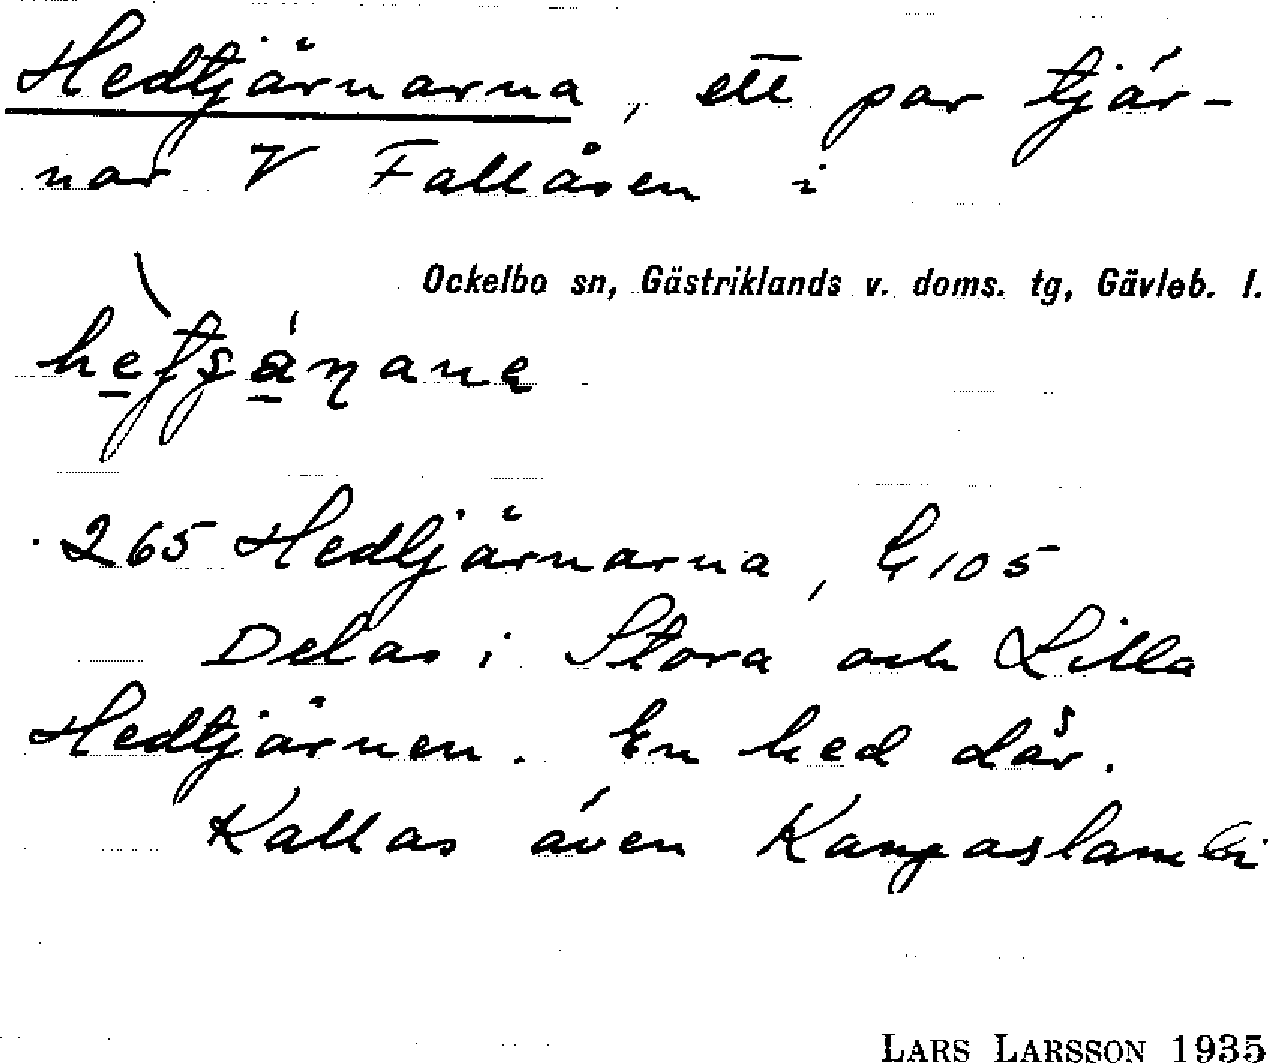 Hedtjärnarna, ett par tjär-
nar V Fallåsen i
Ockelbo sn, Gästriklands v. doms. tg, Gävleb. l.
265 Hedtjärnarna, G 105
Delas i Stora och Lilla
Hedtjärnen. En hed där.
Kallas även Kangaslambi
LARS LARSSON 1935